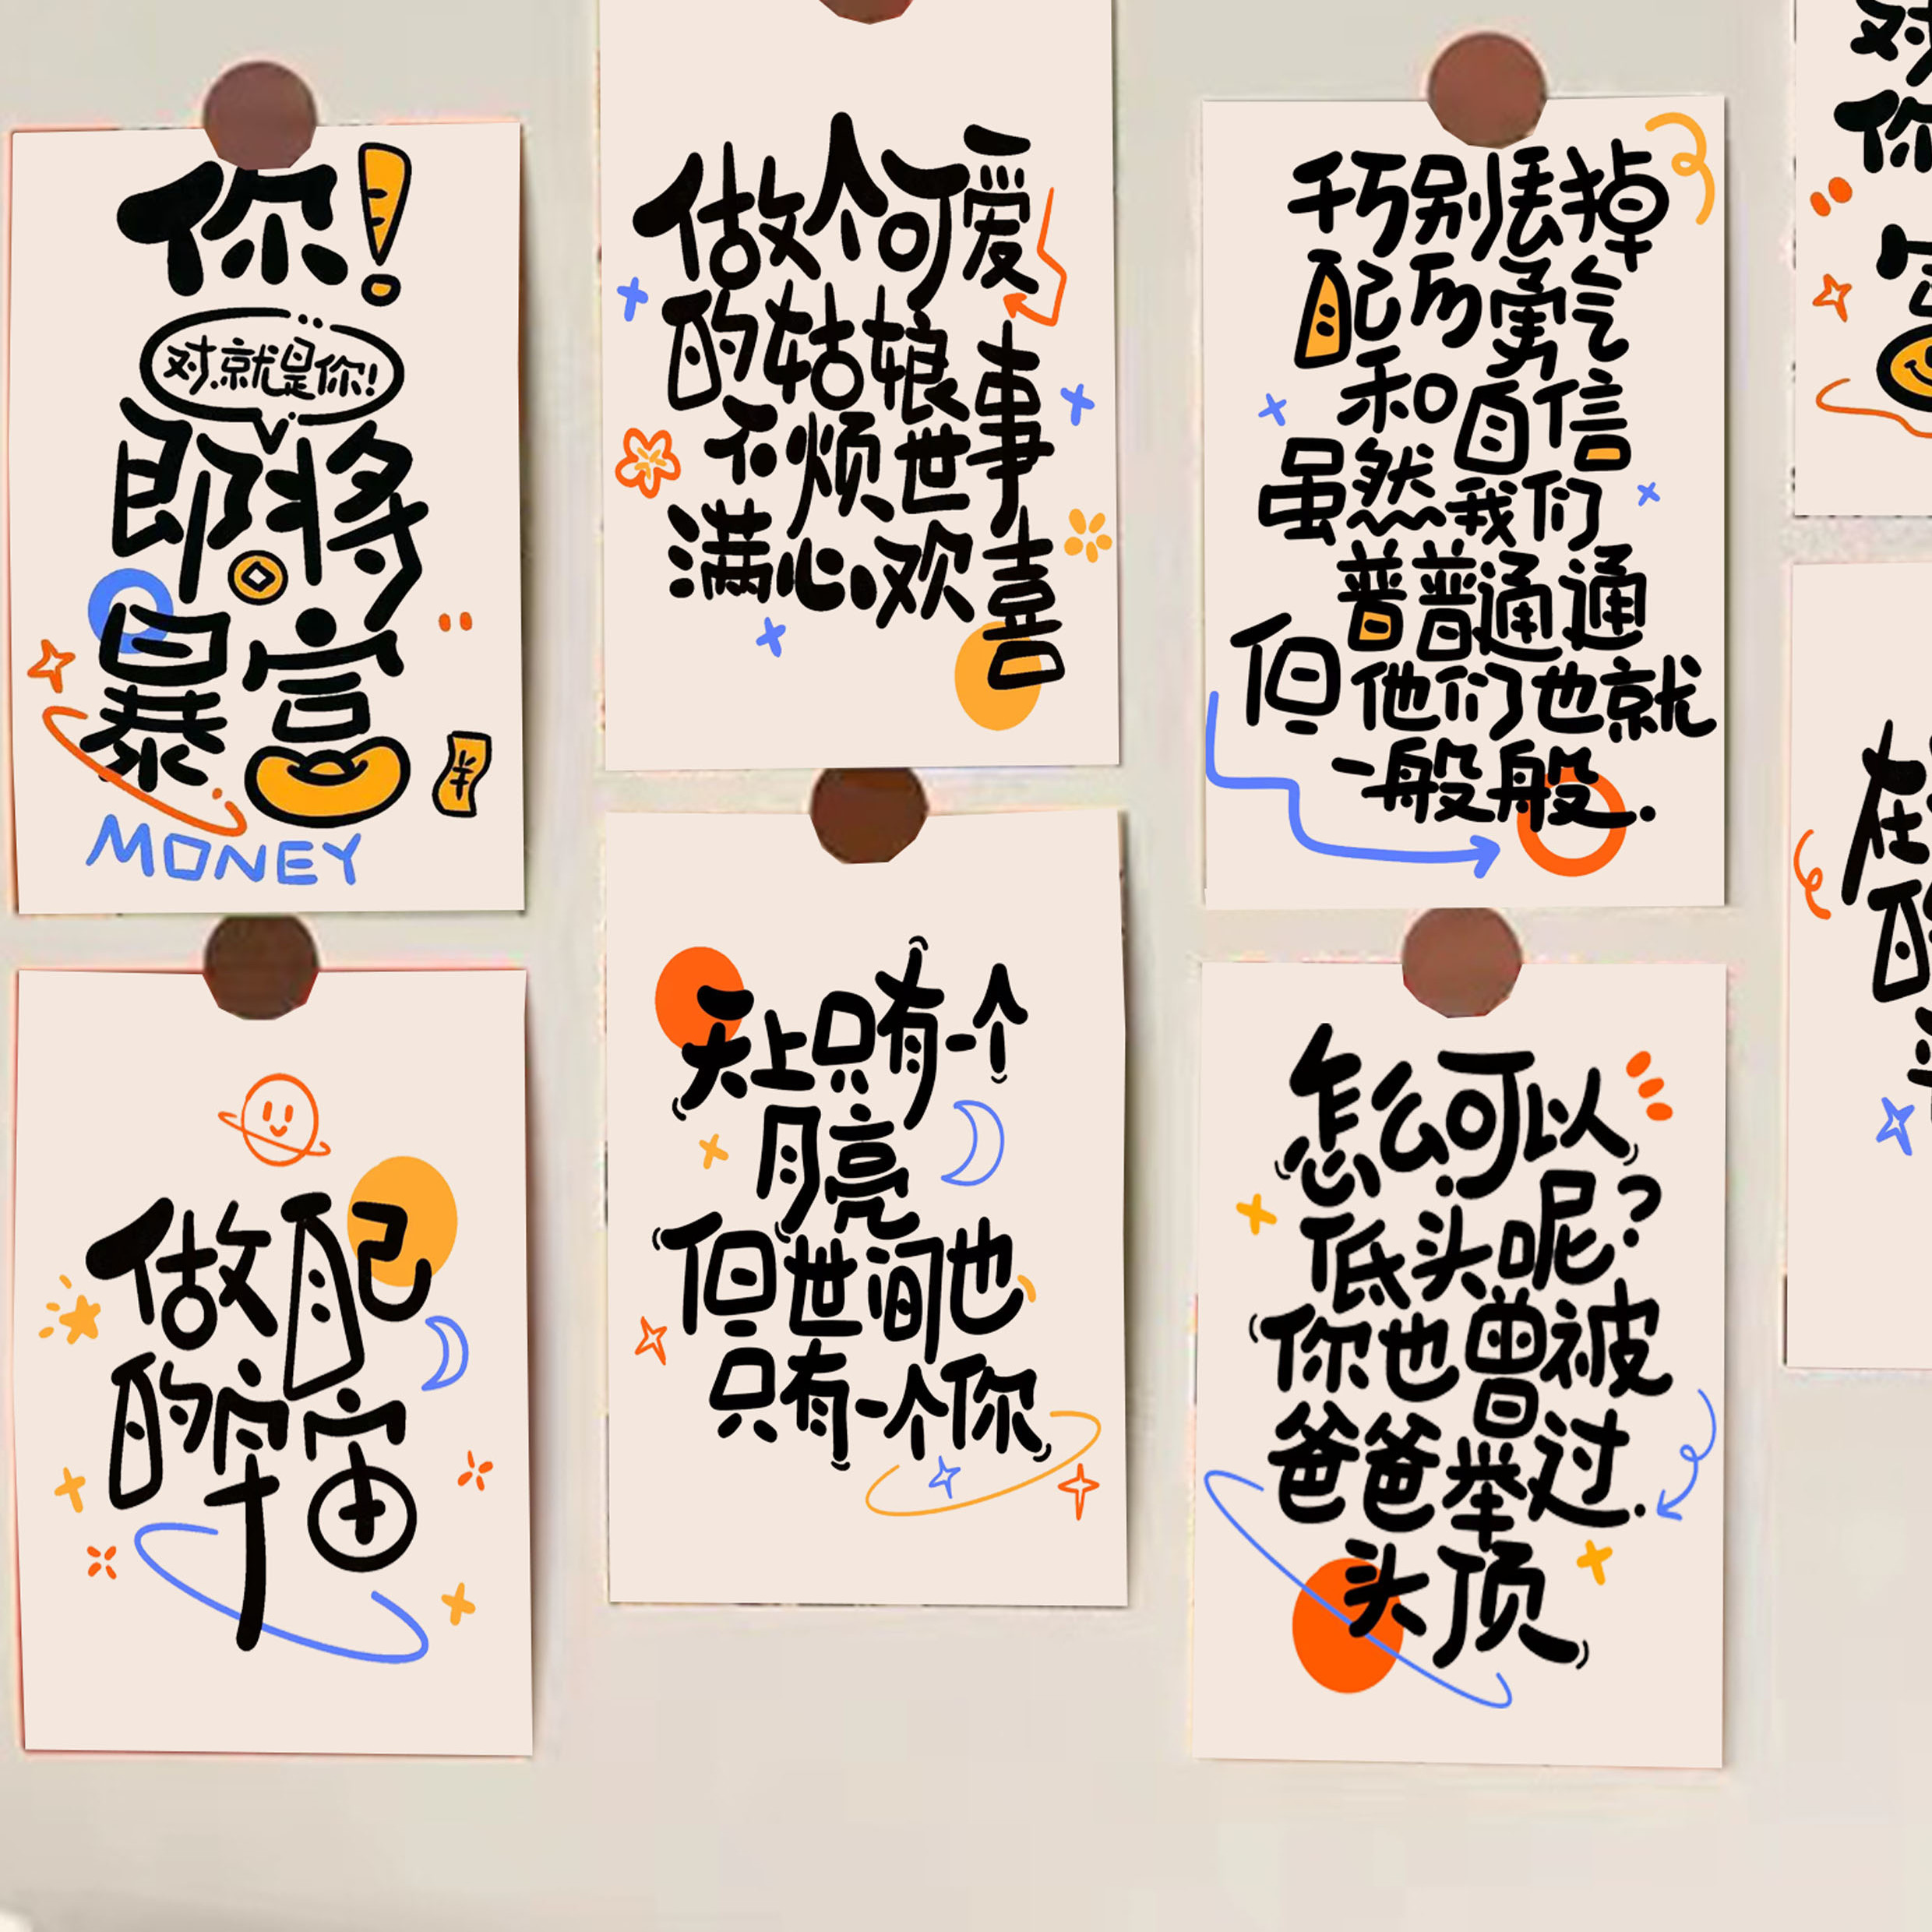 你!
对.就是你!
即将
暴富
¥
MONEY
做个可爱
的姑娘
不烦世事
满心欢喜
千万别丢掉
自己勇气
和自信
虽然我们
普普通通
但他们也就
一般般.
做自己
的宇宙
天上只有一个
月亮
但世间也
只有一个你
怎么可以
低头呢?
你也曾被
爸爸举过.
头顶
对
你
在
的